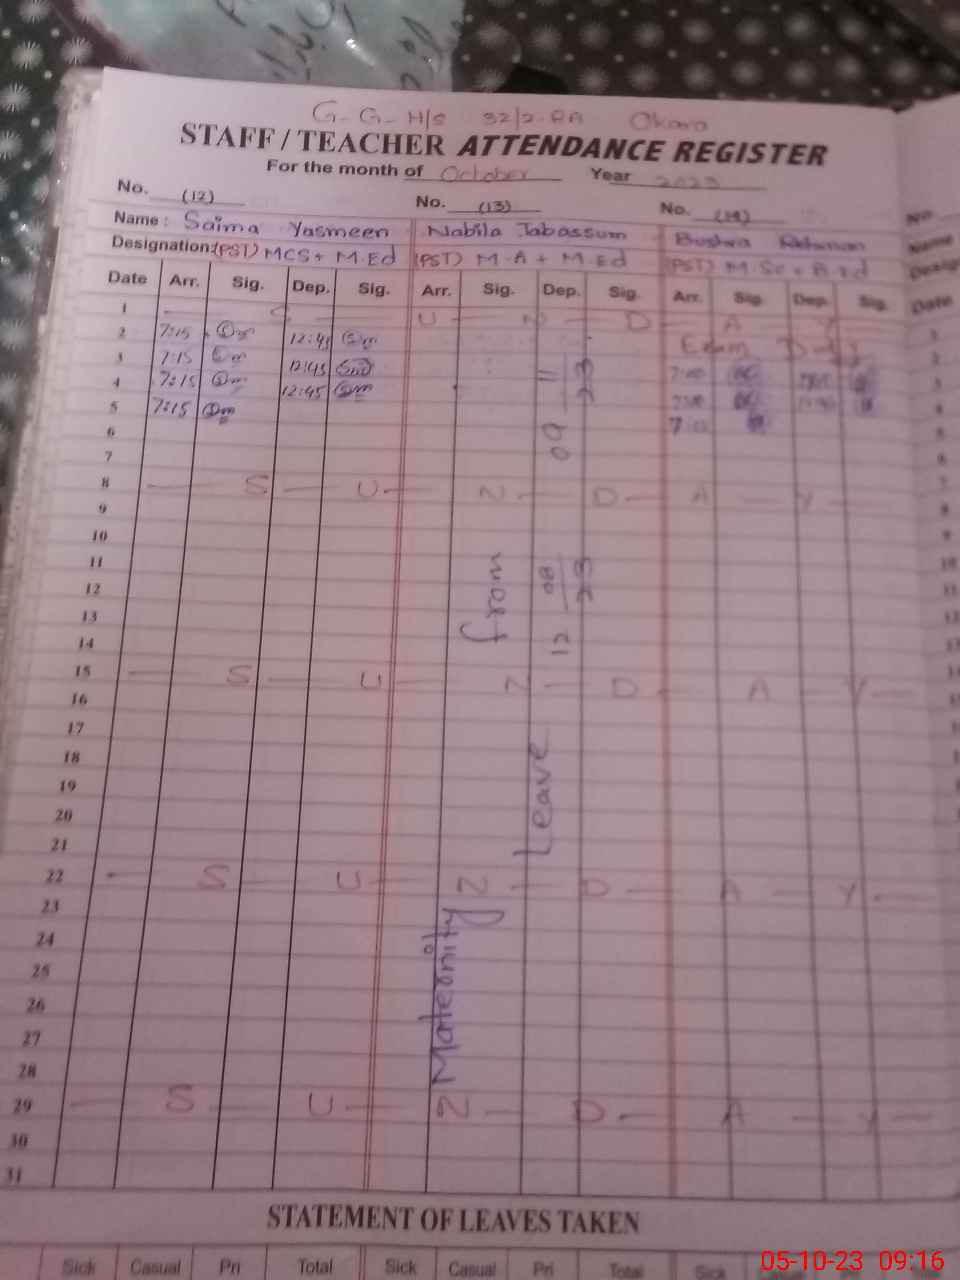 G-G-H/S 32/2-RA Okara
STAFF / TEACHER ATTENDANCE REGISTER
For the month of October Year 2023
No. (12) No. (13) No. (14) No.
Name: Saima Yasmeen Nabila Tabassum Bushra Rehman Name
Designation: (PST) MCS + M.Ed (PST) M.A + M.Ed (PST) M.Sc + B.Ed
Date Arr. Sig. Dep. Sig. Arr. Sig. Dep. Sig. Arr. Sig. Dep. Sig. Date
1 S U N D A Y
2 7:15 12:45 Exam Duty
3 7:15 12:45 7:00
4 7:15 12:45
5 7:15
6
7
8 S U N D A Y
9
10
11
12
13
14
15 S U N D A Y
16
17
18
19
20
21
22 S U N D A Y
23
24
25
26
27
28
29 S U N D A Y
30
31
Maternity Leave
from 12 08 23 09 11 23
STATEMENT OF LEAVES TAKEN
Sick Casual Pri Total Sick Casual Pri Total Sick
05-10-23 09:16